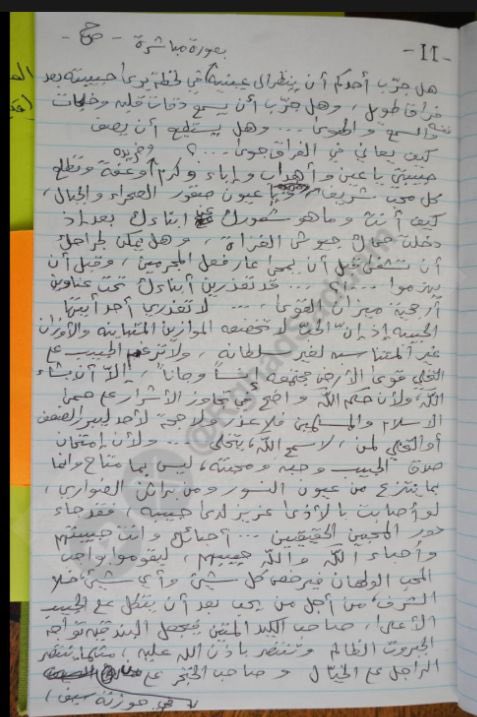 - 11 -
بصورة مباشرة - صح -
هل جرّب أحدكم أن ينظر الى عينيه في لحظة يرى حبيبته بعد
فراق طويل، وهل جرّب أن يسمع دقات قلبه وخلجات
السمع و الهوى ... وهل يستطيع أن يصف
كيف يعاني في الفراق جوى ... ؟
حبيبتي يا عين و أهداب وإباء وكرم أو عفة وتطلع
كل محب شريف، عيون صقور الصحراء والجبال،
كيف أنت وما هو شعورك أبناءك بعد اذ
دخلت حماك جيوش الغزاة، وهل يمكن لجراحك
أن تشفى قبل أن يمحى عار فعل المجرمين، وقبل أن
يهزموا ... قد تعذرين أبناءك تحت عناوين
أرجحية ميزان القوى، ... لا تعذري أحد أيتها
الحبيبة إذ إن الحب لا تخضعه الموازين المتباينة والأوزان
غير المتناسبة لغير سلطانه، ولا ترغم الحبيب على
التخلي قوى الأرض مجتمعة إنساً وجاناً، إلا أن يشاء
الله، ولأن حكم الله واضح في تجاوز الأشرار على حمى
الاسلام و المسلمين فلا عذر ولا حجة لأحد ليبرر الضعف
أو التخلي لمن، لا سمح الله، يتخلى ... ولأن امتحان
صدق الحبيب وحبه ومحبته، ليس بما متاح وانما
بما ينتزع من عيون النسور ومن براثن الضواري،
لو أصابت بالأذى عزيز لدى حبيبه، فقد جاء
دور المحبين الحقيقيين ... أحبائك وانت حبيبتهم
وأحباء الله والله حبيبهم، ليقوموا بواجب
المحب الولهان فيرخص كل شيء وأي شيء خلا
الشرف، من أجل من يحب بعد أن يتكل على الحبيب
الأعلى، صاحب الكيد المتين فيجعل البندقية تواجه
الجبروت الظالم وتنتصر باذن الله عليه، مثلما ينتصر
الراجل على الخيّال و صاحب الخنجر على
في حوزته سيف،
@RghadSaddam